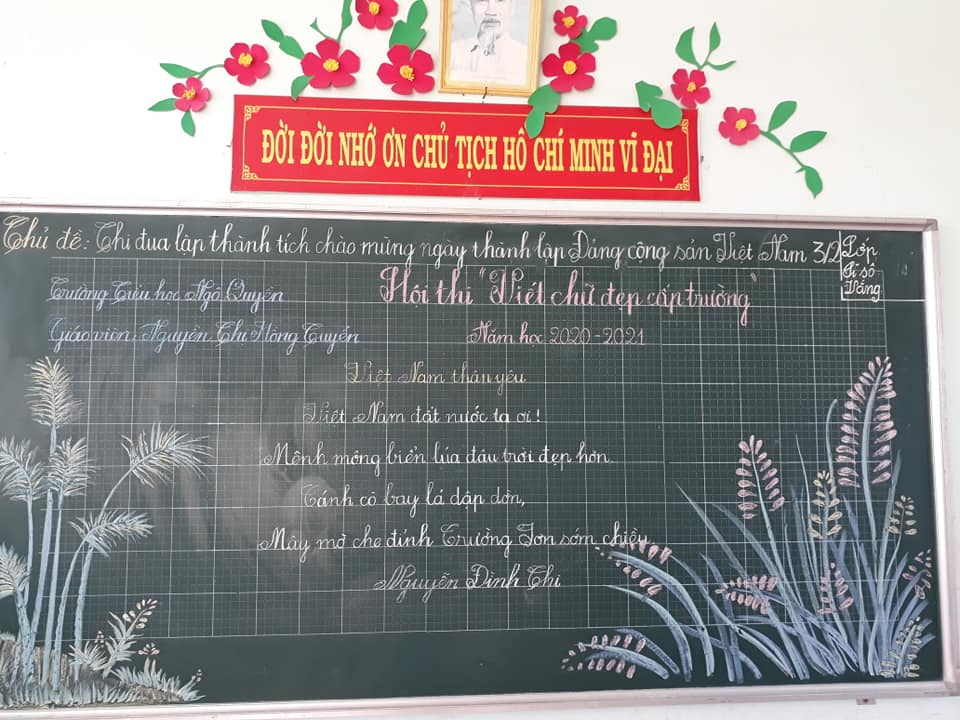 ĐỜI ĐỜI NHỚ ƠN CHỦ TỊCH HỒ CHÍ MINH VĨ ĐẠI
Chủ đề: Thi đua lập thành tích chào mừng ngày thành lập Đảng cộng sản Việt Nam 3/2
Lớp
Sĩ số
Vắng
Hội thi "Viết chữ đẹp cấp trường"
Trường Tiểu học Ngô Quyền
Giáo viên: Nguyễn Thị Hồng Tuyến
Năm học 2020-2021
Việt Nam thân yêu
Việt Nam đất nước ta ơi!
Mênh mông biển lúa đâu trời đẹp hơn
Cánh cò bay lả dập dờn,
Mây mờ che đỉnh Trường Sơn sớm chiều
Nguyễn Đình Thi